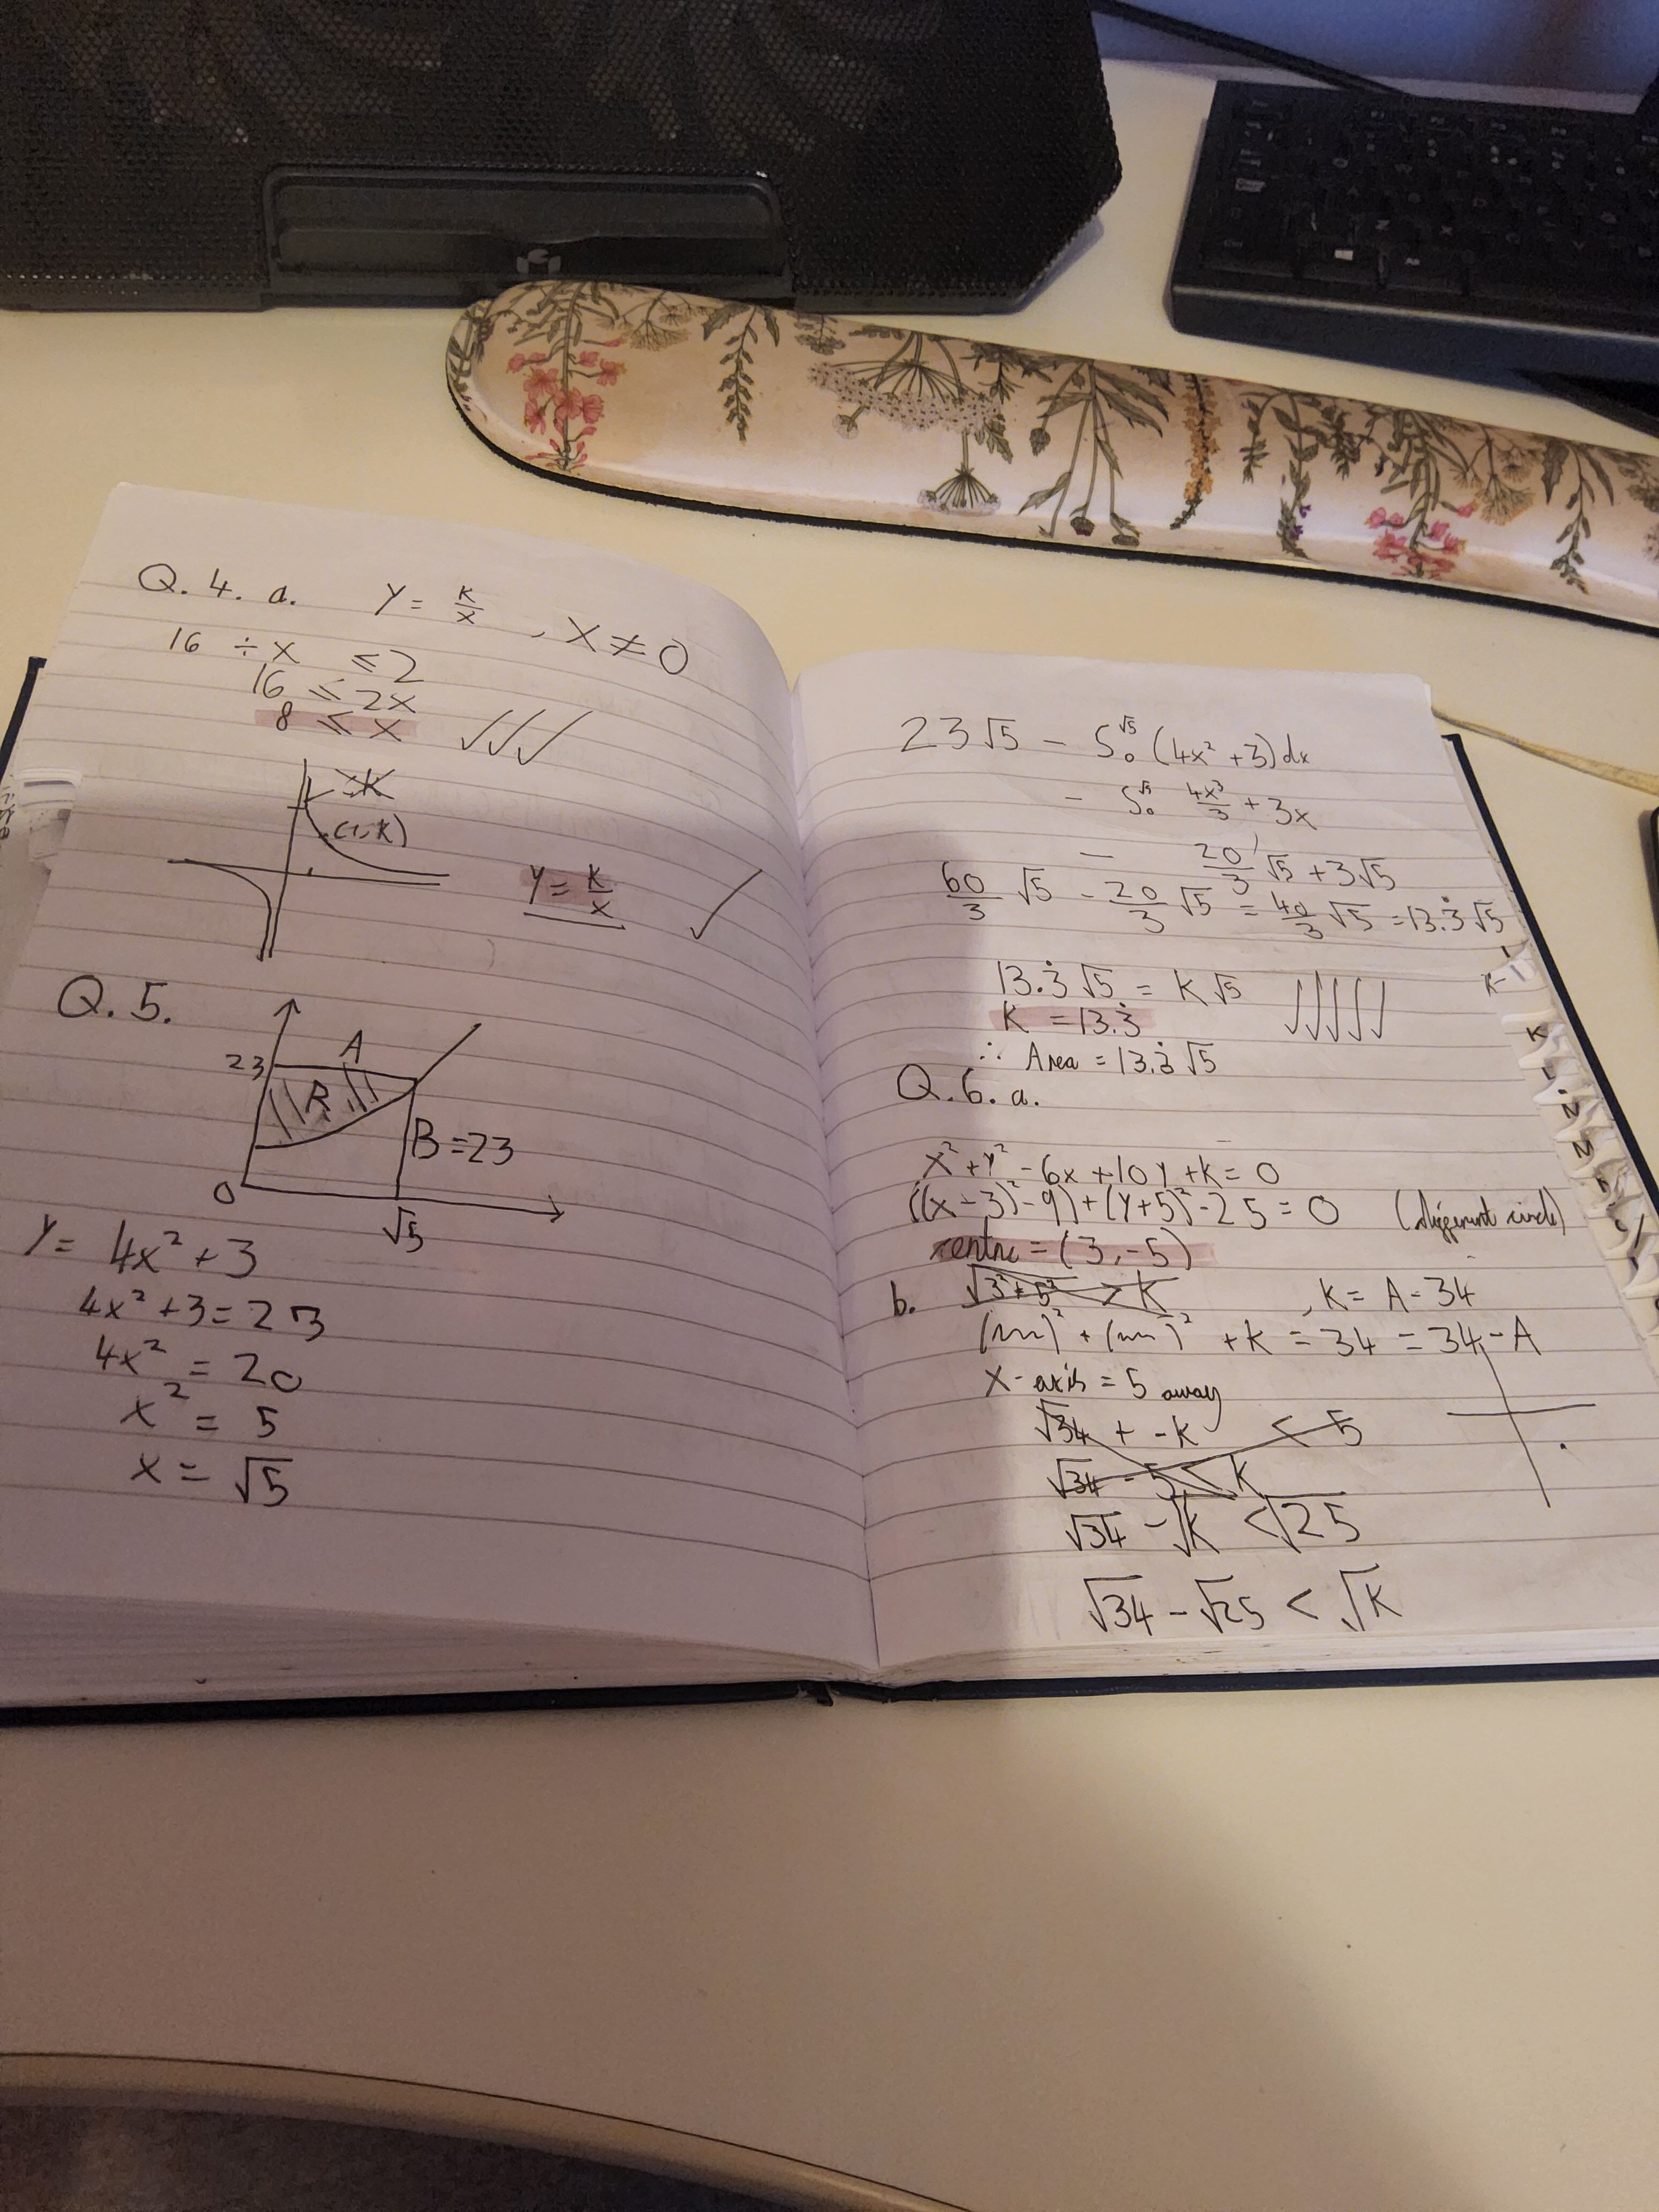 Q. 4. a. y = k/x , x ≠ 0
16 ÷ x ≤ 2
16 ≤ 2x
8 ≤ x
(1, k)
y = k/x
Q. 5.
A
23
R
B = 23
0
√5
y = 4x² + 3
4x² + 3 = 23
4x² = 20
x² = 5
x = √5
23√5 - ∫₀^√5 (4x² + 3) dx
- ∫₀^√5 4x³/3 + 3x
- 20/3 √5 + 3√5
60/3 √5 - 20/3 √5 = 40/3 √5 = 13.3̇√5
13.3̇√5 = k√5
k = 13.3̇
∴ Area = 13.3̇√5
Q. 6. a.
x² + y² - 6x + 10y + k = 0
((x - 3)² - 9) + (y + 5)² - 25 = 0 (different circle)
centre = (3, -5)
b. √3² + 5² > k , k = A - 34
( )² + ( )² + k = 34 = 34 - A
x-axis = 5 away
√34 + -k < 5
√34 - 5 < k
√34 - √k < √25
√34 - √25 < √k
K
L
N
M